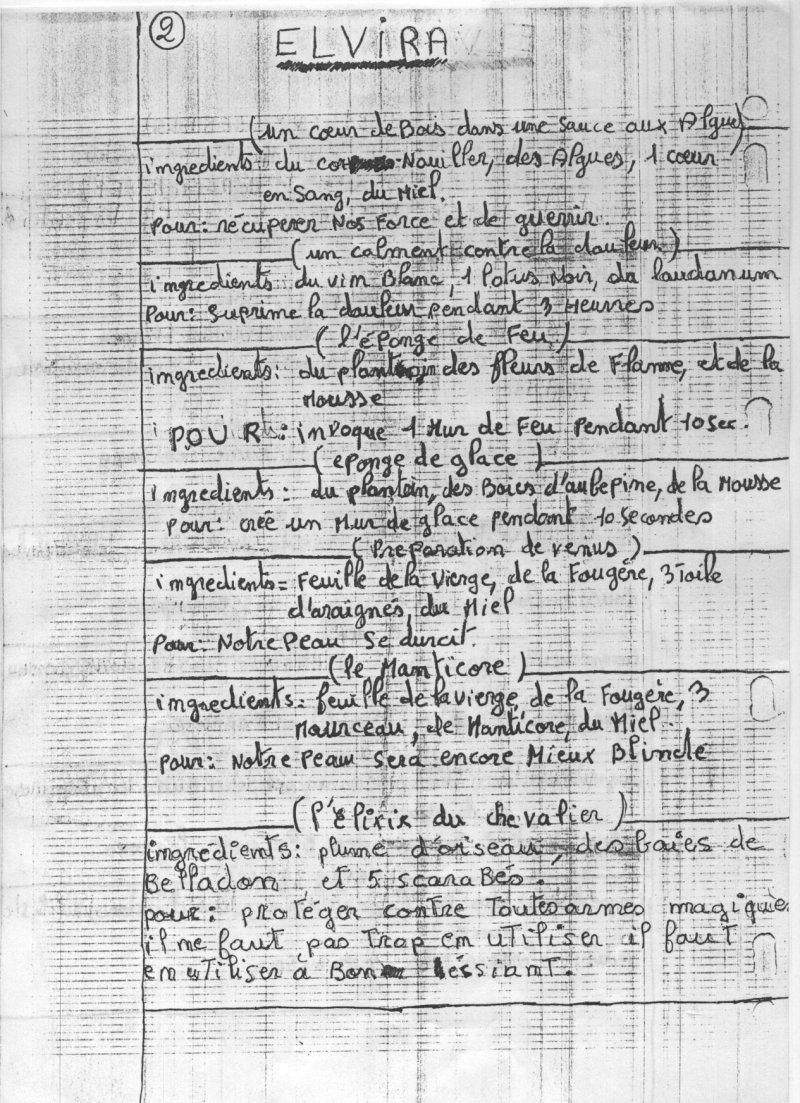 2
ELVIRA
(un cœur de Bois dans une sauce aux Algues)
ingredients: du Nouiller, des Algues, 1 cœur
en Sang, du Miel.
Pour: récuperer Nos Force et de guerrir.
(un calment contre la douleur)
ingredients: du vin Blanc, 1 Lotus Noir, du laudanum
Pour: Suprime la douleur pendant 3 Heures
(l'éponge de Feu)
ingredients: du plantoin des fleurs de Flamme, et de la
Mousse
POUR: invoque 1 Mur de Feu Pendant 10 sec.
(eponge de glace)
ingredients: du plantoin, des Baies d'aubepine, de la Mousse
pour: créé un Mur de glace pendant 10 Secondes
(Preparation de venus)
ingredients = Feuille de la Vierge, de la Fougére, 3 Toile
d'araignés, du Miel
Pour: Notre Peau Se durcit.
(le Manticore)
ingredients: feuille de la vierge, de la Fougére, 3
Mourceau, de Manticore, du Miel.
Pour: Notre Peau Sera encore Mieux Blinde
(l'élixir du chevalier)
ingredients: plume d'oiseau, des baies de
Belladon et 5 scarabés.
pour: protéger contre Toutes armes magique.
il ne faut pas Trop en utiliser il faut
en utiliser à Bon éssiant.